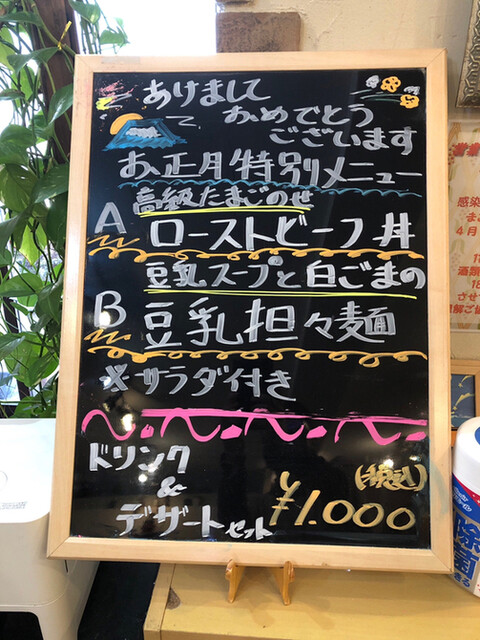 あけまして
おめでとう
ございます
お正月特別メニュー
高級たまごのせ
A ローストビーフ丼
豆乳スープと白ごまの
B 豆乳担々麺
※サラダ付き
ドリンク
&
デザートセット
(税込)
¥1.000
営業
感染
ま
4月
酒類
18
させ
除菌